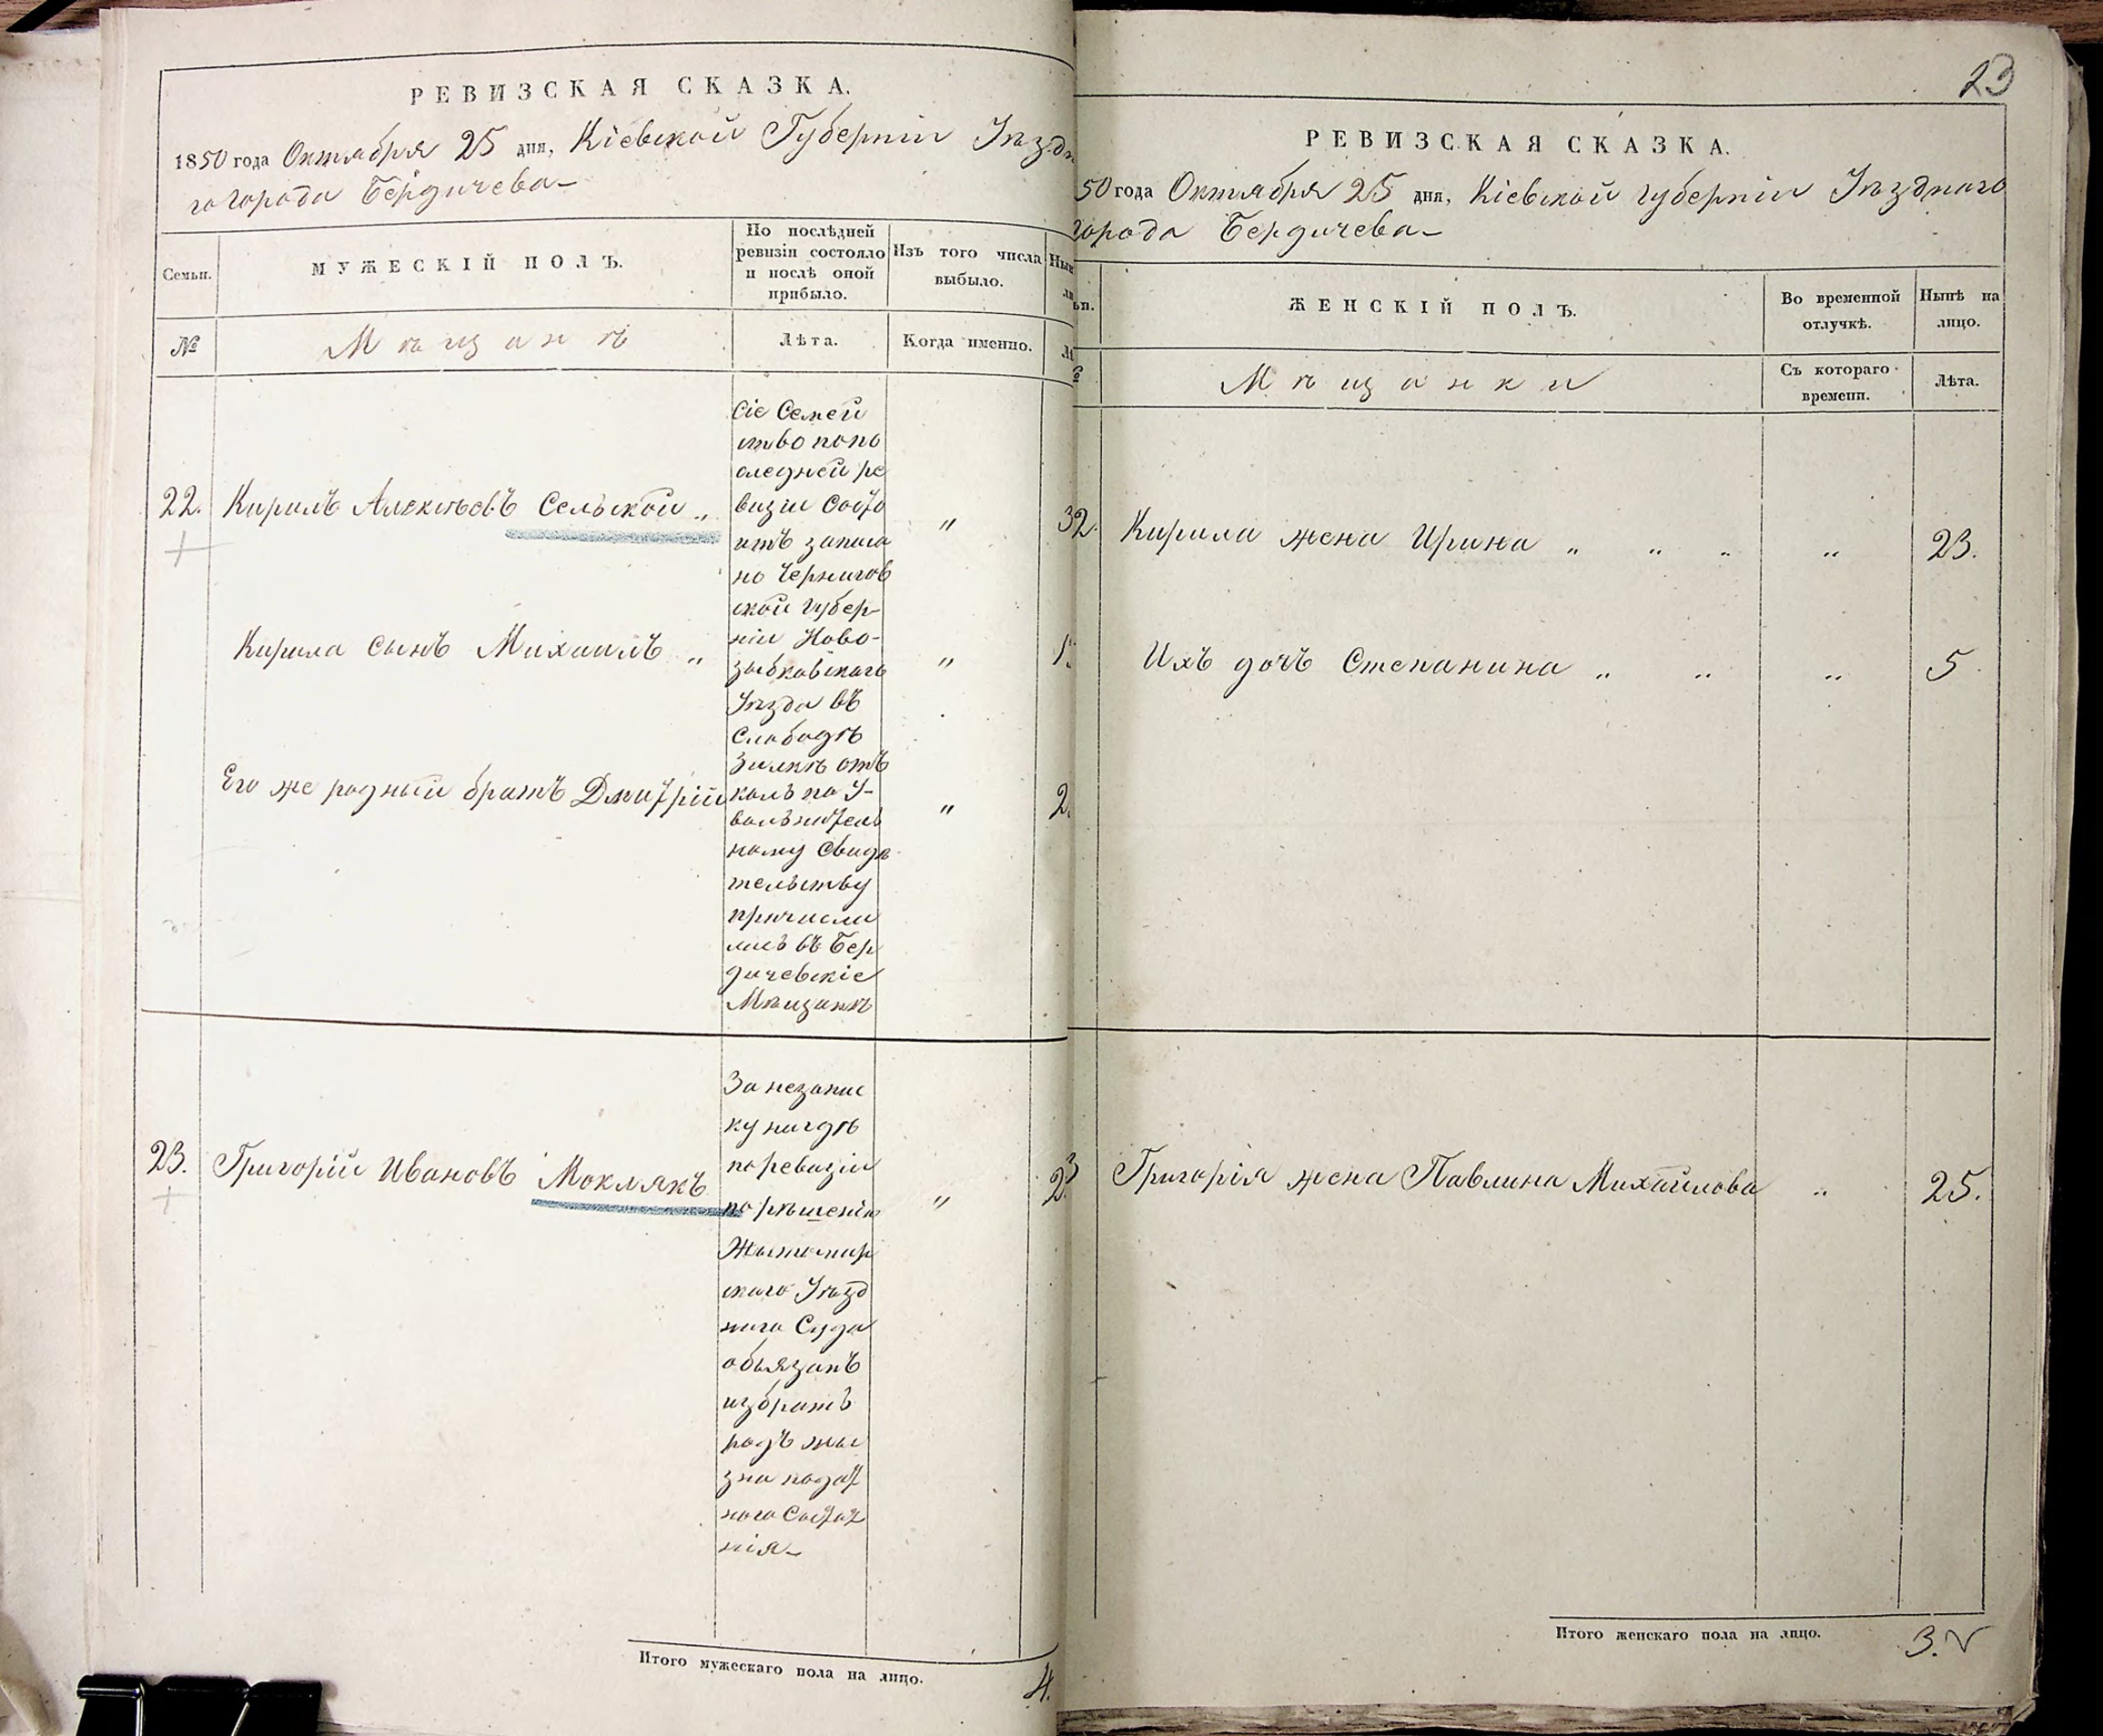 РЕВИЗСКАЯ СКАЗКА.
1850 года Октября 25 дня, Кіевской Губерніи Уѣздна
го города Бердичева
Семьи.
МУЖЕСКІЙ ПОЛЪ.
По послѣдней
ревизіи состояло
и послѣ оной
прибыло.
Изъ того числа
выбыло.
№
Мѣщанѣ
Лѣта.
Когда именно.
22.
Кирилъ Алексѣевъ Сельской „
Сіе Семей
ство попо
следней ре
визіи Состо
итъ записа
но Чернигов
ской губер-
ніи Ново-
зыбковскаго
Уѣзда въ
Слободѣ
Злынкѣ отъ
коль по У-
вольнитель
ному Свидѣ
тельству
причисли
лись въ Бер
дичевскіе
Мѣщанѣ
„
32.
Кирила сынъ Михаилъ „
„
1.
Его же родный братъ Дмитрій
„
2.
23.
Григорій Ивановъ Моклякъ
За незапис
ку нигдѣ
по ревизіи
по рѣшенію
Житомир
скаго Уѣзд
наго Суда
обязанъ
избрать
родъ жи
зни подат
ного Состоя
нія
„
23
Итого мужескаго пола на лицо.
4.
23
РЕВИЗСКАЯ СКАЗКА.
50 года Октября 25 дня, Кіевской губерніи Уѣзднаго
города Бердичева
ЖЕНСКІЙ ПОЛЪ.
Во временной
отлучкѣ.
Нынѣ на
лицо.
Мѣщанки
Съ котораго
времени.
Лѣта.
Кирила жена Ирина „ „ „
„
23.
Ихъ дочь Степанина „ „
„
5.
Григорія жена Павлина Михайлова
„
25.
Итого женскаго пола на лицо.
3.